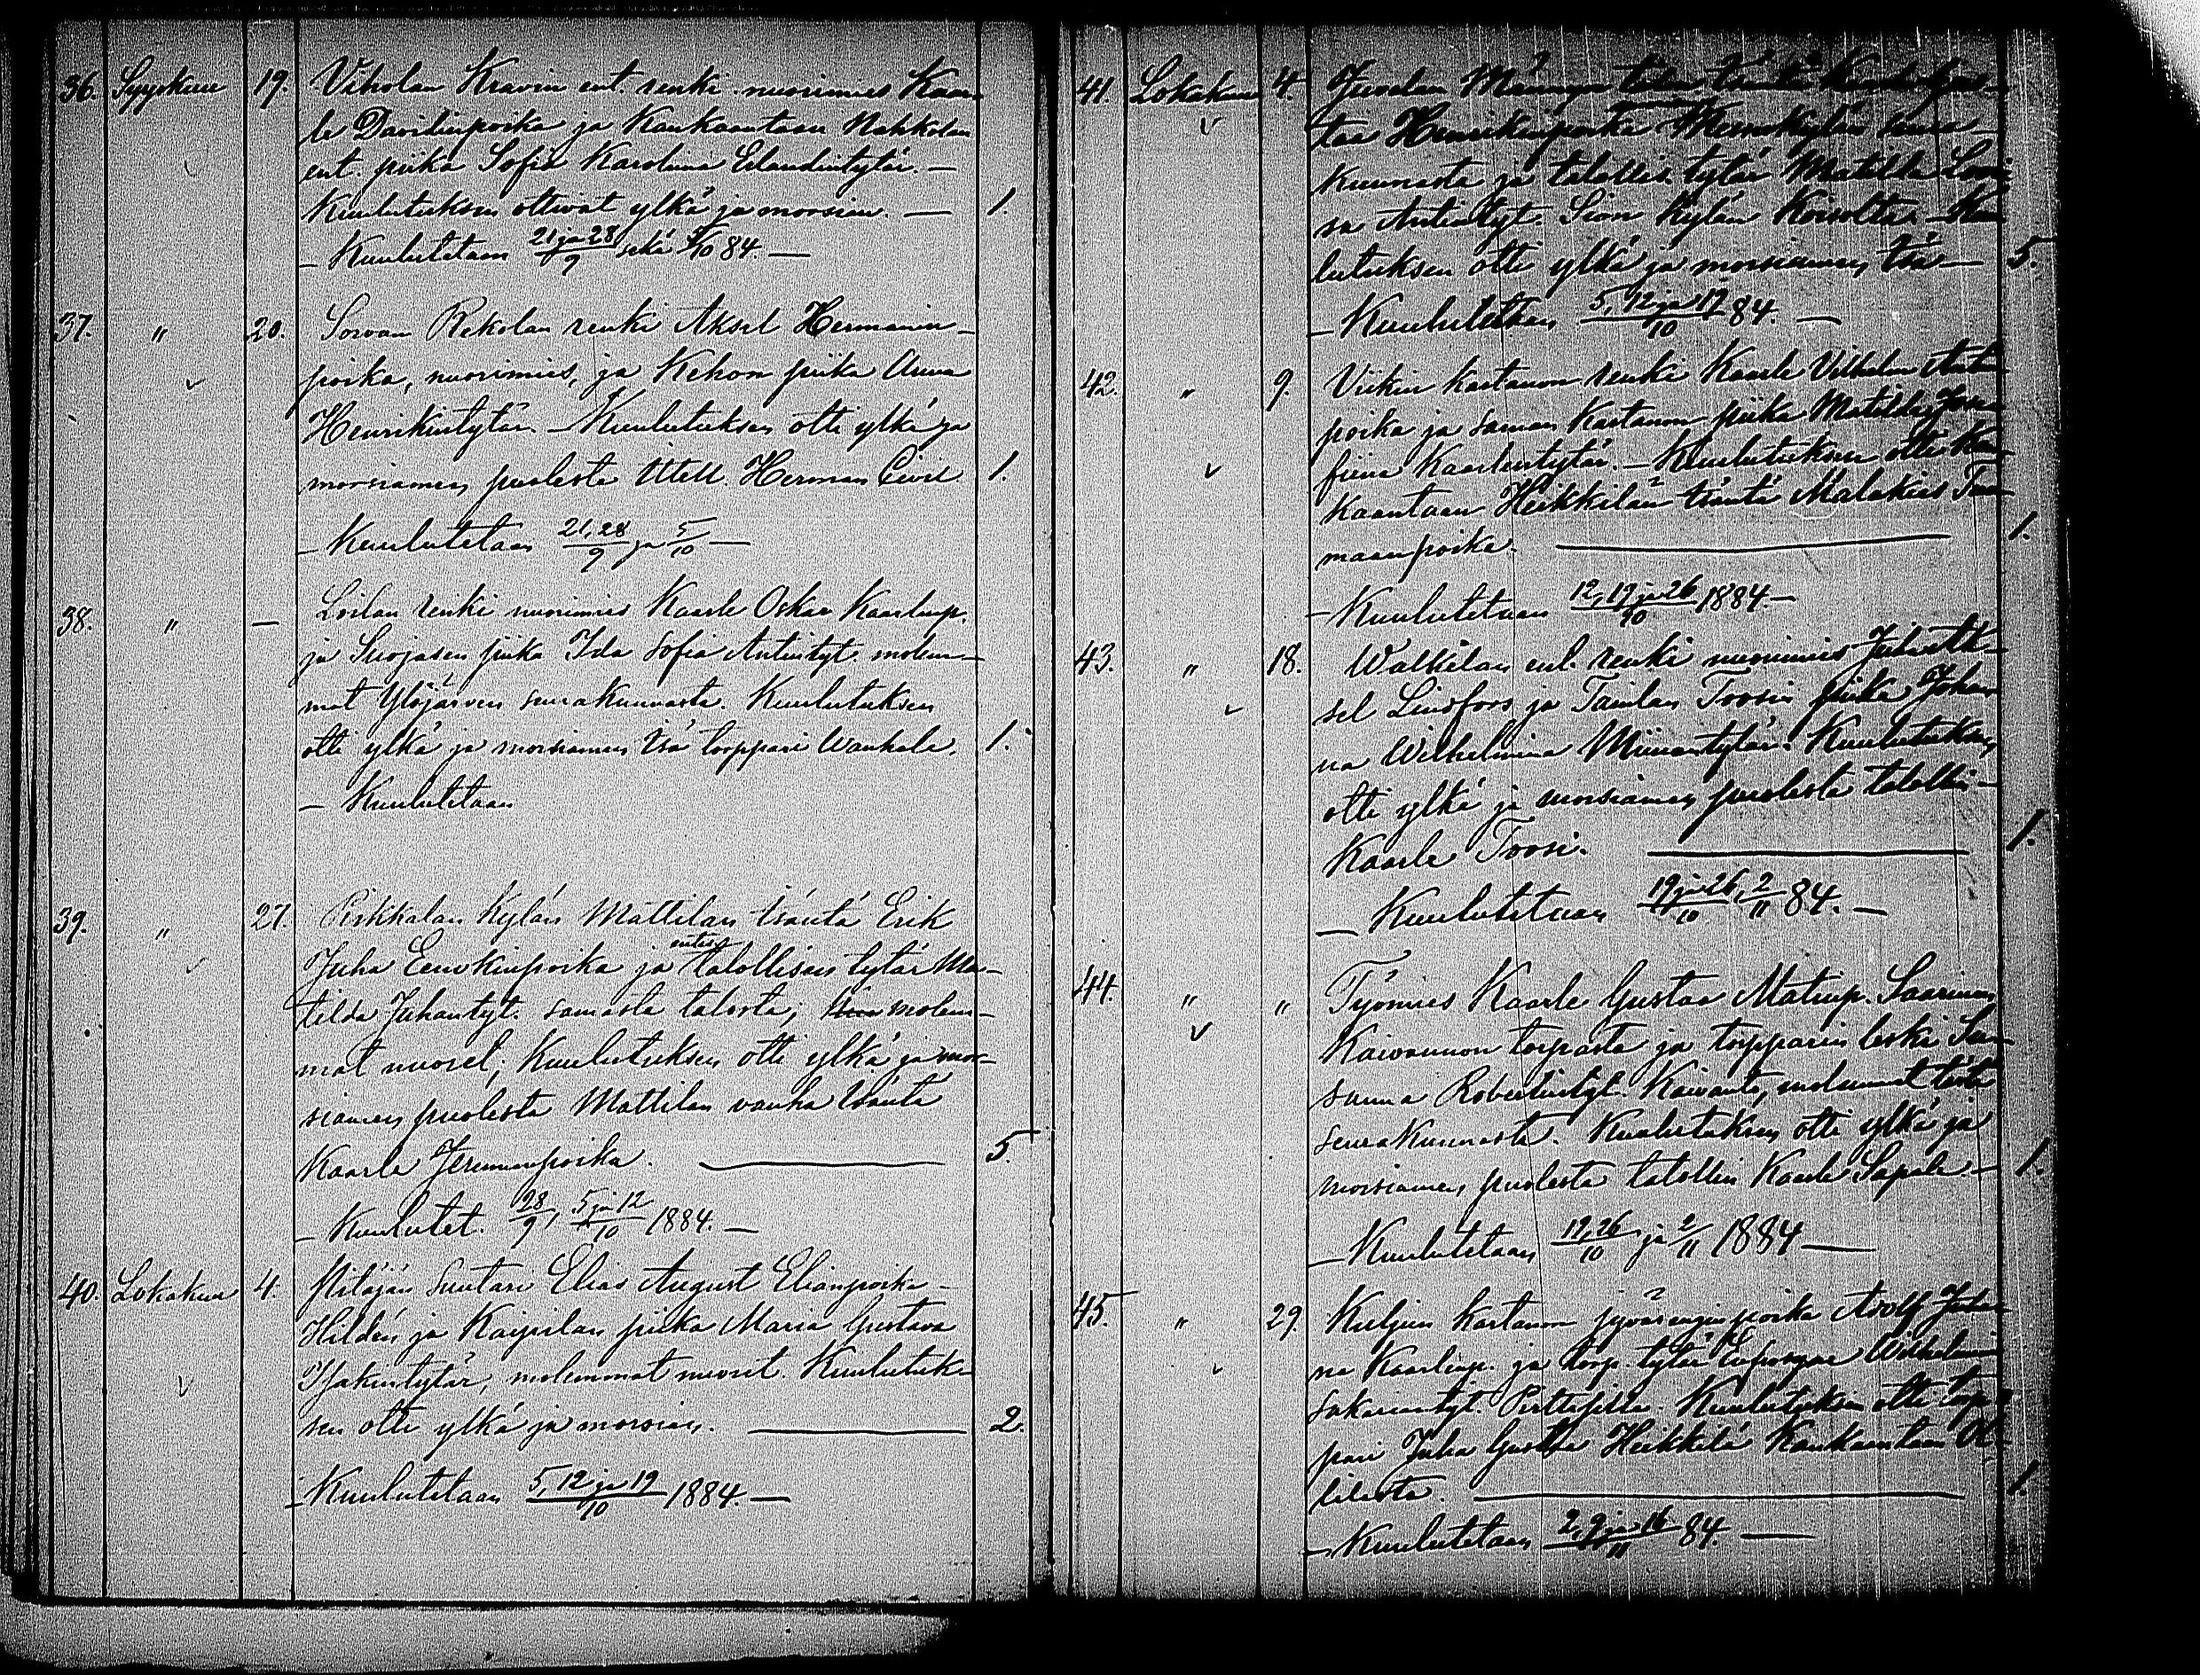 36. Syyskuu 19. Viholan Kravin ent. renki nuorimies Kaar-
le Davidinpoika ja Kankaantaan Nahkolan
ent. piika Sofia Karolina Erlandintytär. —
Kuulutuksen ottivat ylkä ja morsian. — 1.
— Kuulutetaan 21 ja 28/9 sekä 5/10 84. —
37. " 20. Sorvan Rekolan renki Aksel Hermanin-
poika, nuorimies, ja Kehon piika Anna
Henrikintytär — Kuulutuksen otti ylkä ja
morsiamen puolesta Herman 1.
— Kuulutetaan 21, 28/9 ja 5/10 —
38. " — Loilan renki nuorimies Kaarle Oskar Kaarlenp.
ja Suojasen piika Ida Sofia Antintyt. molem-
mat Ylöjärven seurakunnasta. Kuulutuksen
otti ylkä ja morsiamen isä torppari Wanhala. 1.
— Kuulutetaan
39. " 27. Pirkkalan kylän Mattilan isäntä Erik
Juha Eenokinpoika ja entis. talollisen tytär Ma-
tilda Juhantyt. samasta talosta; molem-
mat nuoret; Kuulutuksen otti ylkä ja mor-
siamen puolesta Mattilan vanha isäntä
Kaarle Jeremianpoika. — 5.
— Kuulutet. 28/9, 5 ja 12/10 1884. —
40. Lokakuu 4. Pitäjän suutari Elias August Elianpoika
Hildén ja Kaipilan piika Maria Gustava
Isakintytär, molemmat nuoret. Kuulutuk-
sen otti ylkä ja morsian. — 2.
— Kuulutetaan 5, 12 ja 19/10 1884. —
41. Lokakuu 4. Juvelan Männyn talon isäntä
taa Henrikinpoika seura-
kunnasta ja talollis. tytär Matilda Lovi-
sa Antintyt. Sion kylän Koivolta. — Kuu-
lutuksen otti ylkä ja morsiamen isä — 5.
— Kuulutetaan 5, 12 ja 19/10 84. —
42. " 9. Viikin kartanon renki Kaarle Vilhelm Antin-
poika ja saman kartanon piika Matilda Jose-
fiina Kaarlentytär. — Kuulutuksen otti Kan-
kaantaan Heikkilän isäntä Malakias Tuo-
maanpoika. — 1.
— Kuulutetaan 12, 19 ja 26/10 1884. —
43. " 18. Walkilan ent. renki nuorimies Juho Ak-
sel Linsfors ja Tanilan Toosin piika Johan-
na Wilhelmina Miinantytär. Kuulutuksen
otti ylkä ja morsiamen puolesta talollin-
Kaarle Toosi. — 1.
— Kuulutetaan 19 ja 26/10, 2/11 84. —
44. " " Työmies Kaarle Gustaa Matinp. Saarinen
Kaivannon torpasta ja torpparin leski Su-
sanna Robertintyt. Kaivanto, molemmat tästä
seurakunnasta. Kuulutuksen otti ylkä ja
morsiamen puolesta talollin Kaarle Sapala — 1.
— Kuulutetaan 19, 26/10 ja 2/11 1884 —
45. " 29. Kuljun kartanon jyvärenginpoika Adolf Juha-
na Kaarlenp. ja torp. tytär Eufrosyne Wilhelmiina
Sakariantyt. Perttupilta. Kuulutuksen otti torp-
pari Juha Gustaa Heikkilä Kankaantaan Ol-
lilasta. — 1.
— Kuulutetaan 2, 9 ja 16/11 84. —